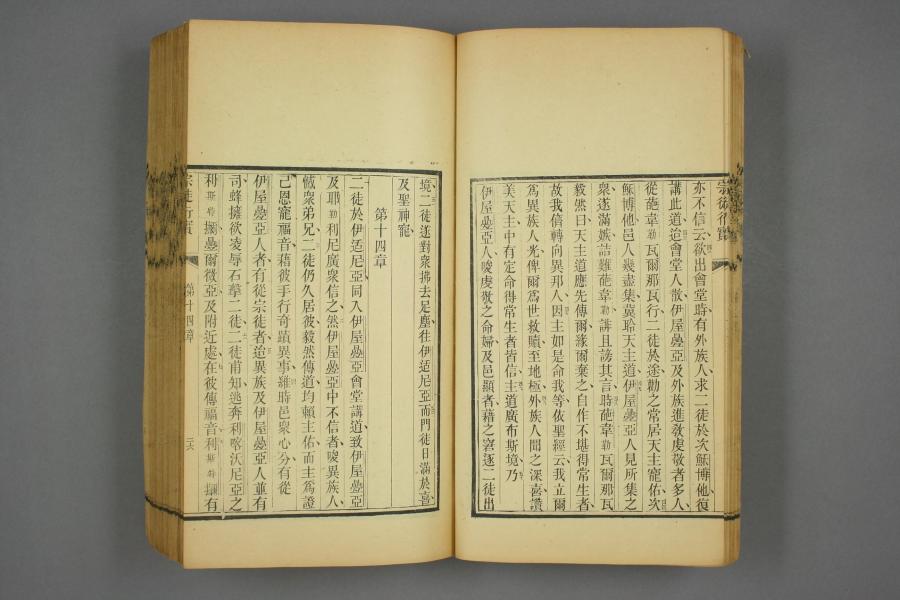 宗徒行實
亦不信云欲出會堂時有外族人求二徒於次穌博他復
講此道迨會堂人散伊屋𠁅亞及外族進敎虔敬者多人
從葩韋勒瓦爾那瓦行二徒於途勸之常居天主寵佑次
穌博他邑人幾盡集冀聆天主道伊屋𠁅亞人見所集之
衆遂滿嫉詰難葩韋勒誹且謗其言時葩韋勒瓦爾那瓦
毅然曰天主道應先傳爾緣爾棄之自作不堪得常生者
故我儕轉向異邦人因主如是命我等依聖經云我立爾
爲異族人光俾爾爲世救贖至地極外族人聞之深喜讚
美天主中有定命得常生者皆信主道廣布斯境乃
伊屋𠁅亞人唆虔敬之命婦及邑顯者藉之窘逐二徒出
境二徒遂對衆拂去足塵往伊适尼亞而門徒日滿於喜
及聖神寵
第十四章
二徒於伊适尼亞同入伊屋𠁅亞會堂講道致伊屋𠁅亞
及耶勒利尼廣衆信之然伊屋𠁅亞中不信者唆異族人
憾衆弟兄二徒仍久居彼毅然傳道均賴主佑而主爲證
己恩寵福音藉彼手行奇蹟異事維時邑衆心分有從
伊屋𠁅亞人者有從宗徒者迨異族及伊屋𠁅亞人並有
司蜂擁欲凌辱石擊二徒二徒甫知逃奔利喀沃尼亞之
利斯特擱𠁅爾微亞及附近處在彼傳福音利斯特擱有
宗徒行實
第十四章
二六